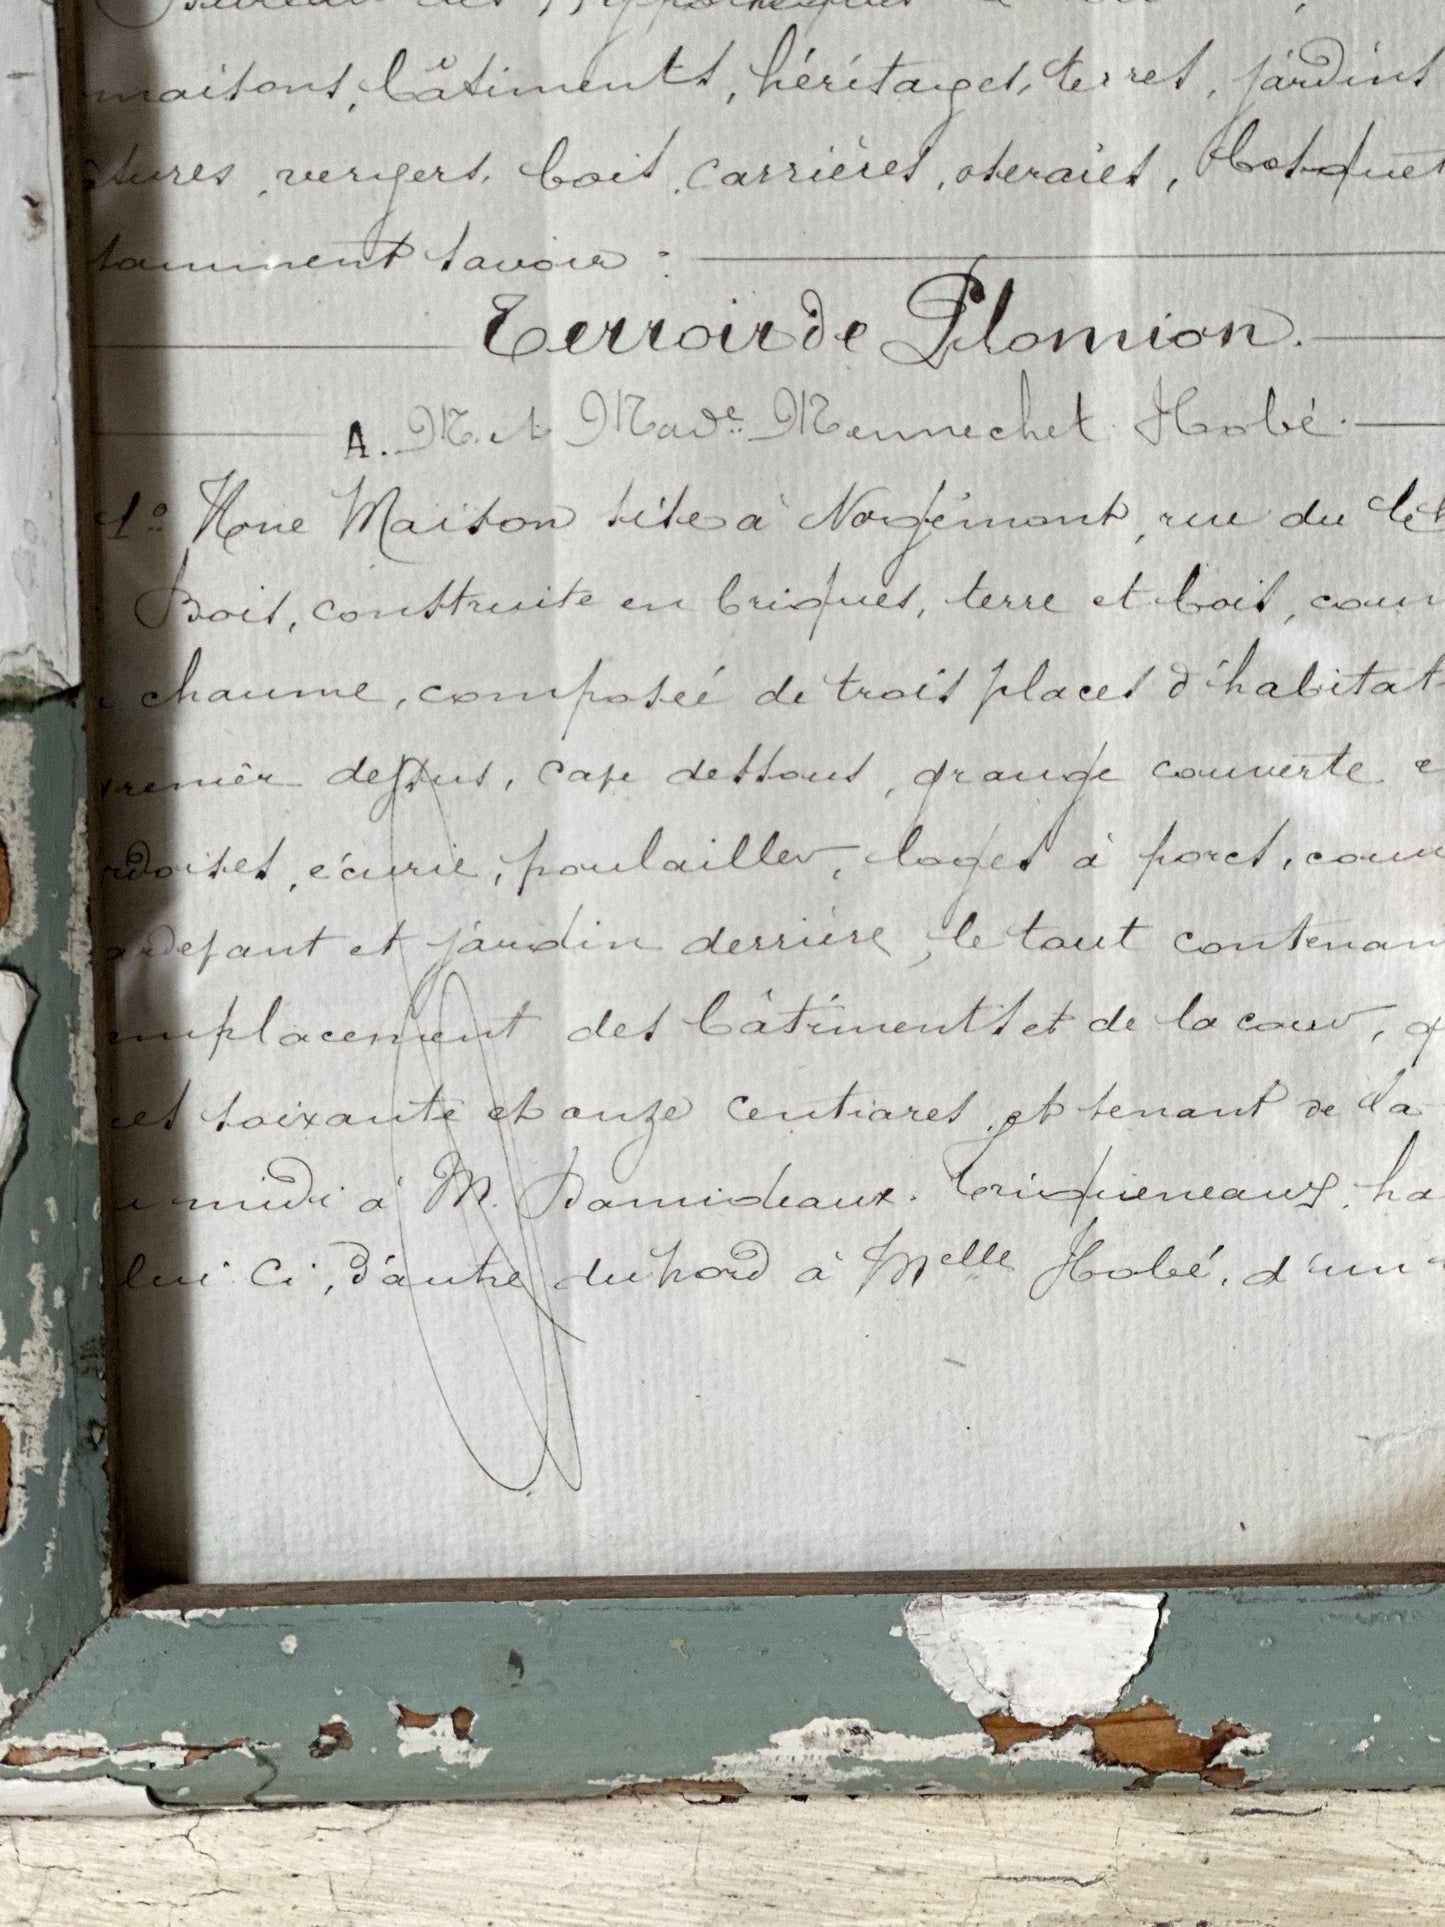 Bureau des Hypothèques
maisons, bâtiments, héritages, terres, jardins
tures, vergers, bois, carrières, oseraies, bosquet
tamment savoir :
Terroir de Plomion.
A. M. et Made Mennechet Hobé.
1º Une Maison sise à Norgémont, rue du
Bois, construite en briques, terre et bois, couv
chaume, composée de trois places d'habitat
remier dessus, cave dessous, grange couverte e
rdoises, écurie, poulailler, loges à porcs, cour
ardevant et jardin derrière, le tout contenan
emplacement des bâtiments et de la cour, q
res soixante et onze centiares, et tenant de la
u midi à M. Damideaux. Briqueneaux, ha
lui ci, d'autre du nord à Melle Hobé, d'un